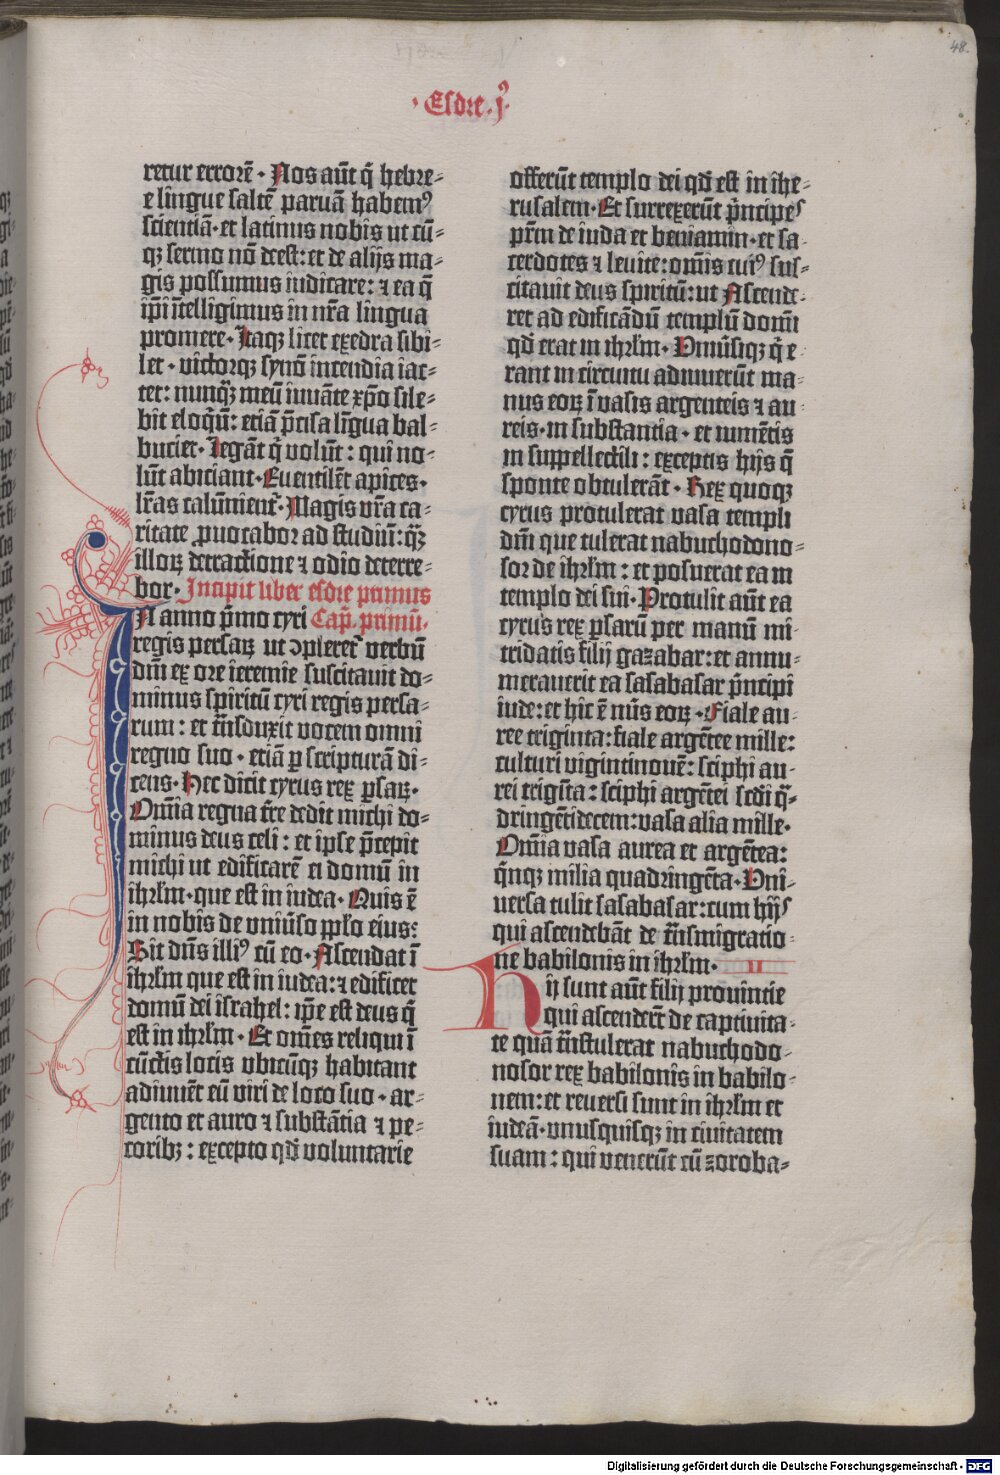 48
· Esdre · j⁹·
retur errorē · Nos aūt q̄ hebre⸗
e lingue saltē paruā habem⁹
scientiā · et latinus nobis ut cū⸗
qȝ sermo nō deest : et de alijs ma⸗
gis possumus iudicare : ⁊ ea q̄
ip̄i ītelligimus in nr̄a lingua
promere · Itaqȝ licet exedra sibi⸗
let · victorqȝ synō incendia iac⸗
tet : nunq̄ȝ meū iuuāte xp̄o sile⸗
bit eloq̄ū : etiā p̄cisa līgua bal⸗
butiet · Legāt q̄ volūt : qui no⸗
lūt abiciant · Euentilēt apices ·
lr̄as calūnient᷑ · Magis vr̄a ca⸗
ritate ꝓuocabor ad studiū : q̄ȝ
illoꝝ detractione ⁊ odio deterre⸗
bor · Incipit liber esdre primus
In anno p̄mo cyri Cap̄. primū.
regis persaꝝ ut ↄpleret᷑ verbū
dn̄i ex ore ieremie suscitauit do⸗
minus spiritū cyri regis persa⸗
rum : et tn̄sduxit vocem omni
regno suo · etiā ꝑ scripturā di⸗
cens · Hec dicit cyrus rex ꝑsaꝝ ·
Om̄ia regna tr̄e dedit michi do⸗
minus deus celi : et ipse p̄cepit
michi ut edificarē ei domū in
ihrl̄m · que est in iudea · Quis ē
in nobis de vniūso pp̄lo eius :
Sit dn̄s illi⁹ cū eo · Ascendat ī
ihrl̄m que est in iudea : ⁊ edificet
domū dei israhel : ip̄e est deus q̄
est in ihrl̄m · Et om̄es reliqui ī
cūctis locis vbicūqȝ habitant
adiuuēt eū viri de loco suo · ar⸗
gento et auro ⁊ substātia ⁊ pe⸗
coribȝ : excepto qd̄ voluntarie
offerūt templo dei qd̄ est in ihe⸗
rusalem · Et surrexerūt p̄ncipes
pr̄m de iuda et beniamin · et sa⸗
cerdotes ⁊ leuite : om̄is cui⁹ sus⸗
citauit deus spiritū : ut Ascende⸗
ret ad edificādū templū dom̄i
qd̄ erat in ihrl̄m · Vniūsiqȝ q̄ e⸗
rant in circuitu adiuuerūt ma⸗
nus eoꝝ ī vasis argenteis ⁊ au⸗
reis · in substantia · et iumētis
in suppellectili : exceptis hijs q̄
sponte obtulerāt · Rex quoqȝ
cyrus protulerat vasa templi
dn̄i que tulerat nabuchodono⸗
sor de ihrl̄m : et posuerat ea in
templo dei sui · Protulit aūt ea
cyrus rex ꝑsarū per manū mi⸗
tridatis filij gazabar : et annu⸗
merauerit ea sasabasar p̄ncipi
iude : et hic ē nūs eoꝝ · Fiale au⸗
ree triginta : fiale argētee mille :
cultri vigintinouē : sciphi au⸗
rei trigīta : sciphi argētei sc̄di q̄⸗
dringētidecem : vasa alia mille ·
Om̄ia vasa aurea et argētea :
q̄nqȝ milia quadringēta · Vni⸗
uersa tulit sasabasar : cum hijs
qui ascendebāt de tn̄smigratio⸗
ne babilonis in ihrl̄m · II
Hij sunt aūt filij prouintie
qui ascender̄t de captiuita⸗
te quā tn̄stulerat nabuchodo⸗
nosor rex babilonis in babilo⸗
nem : et reuersi sunt in ihrl̄m et
iudeā · vnusquisqȝ in ciuitatem
suam : qui venerūt cū zoroba⸗
Digitalisierung gefördert durch die Deutsche Forschungsgemeinschaft - DFG